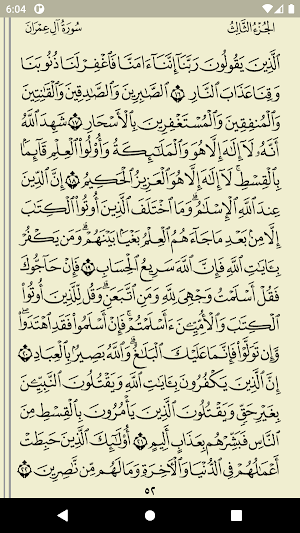 6:04
سُورَةُ آلِ عِمْرَانَ الجُزْءُ الثَّالِثُ
ٱلَّذِينَ يَقُولُونَ رَبَّنَآ إِنَّنَآ ءَامَنَّا فَٱغْفِرْ لَنَا ذُنُوبَنَا
وَقِنَا عَذَابَ ٱلنَّارِ ١٦ ٱلصَّٰبِرِينَ وَٱلصَّٰدِقِينَ وَٱلْقَٰنِتِينَ
وَٱلْمُنفِقِينَ وَٱلْمُسْتَغْفِرِينَ بِٱلْأَسْحَارِ ١٧ شَهِدَ ٱللَّهُ
أَنَّهُۥ لَآ إِلَٰهَ إِلَّا هُوَ وَٱلْمَلَٰٓئِكَةُ وَأُو۟لُوا۟ ٱلْعِلْمِ قَآئِمًۢا
بِٱلْقِسْطِ ۚ لَآ إِلَٰهَ إِلَّا هُوَ ٱلْعَزِيزُ ٱلْحَكِيمُ ١٨ إِنَّ ٱلدِّينَ
عِندَ ٱللَّهِ ٱلْإِسْلَٰمُ ۗ وَمَا ٱخْتَلَفَ ٱلَّذِينَ أُوتُوا۟ ٱلْكِتَٰبَ
إِلَّا مِنۢ بَعْدِ مَا جَآءَهُمُ ٱلْعِلْمُ بَغْيًۢا بَيْنَهُمْ ۗ وَمَن يَكْفُرْ
بِـَٔايَٰتِ ٱللَّهِ فَإِنَّ ٱللَّهَ سَرِيعُ ٱلْحِسَابِ ١٩ فَإِنْ حَآجُّوكَ
فَقُلْ أَسْلَمْتُ وَجْهِىَ لِلَّهِ وَمَنِ ٱتَّبَعَنِ ۗ وَقُل لِّلَّذِينَ أُوتُوا۟
ٱلْكِتَٰبَ وَٱلْأُمِّيِّـۧنَ ءَأَسْلَمْتُمْ ۚ فَإِنْ أَسْلَمُوا۟ فَقَدِ ٱهْتَدَوا۟ ۖ
وَّإِن تَوَلَّوْا۟ فَإِنَّمَا عَلَيْكَ ٱلْبَلَٰغُ ۗ وَٱللَّهُ بَصِيرٌۢ بِٱلْعِبَادِ ٢٠
إِنَّ ٱلَّذِينَ يَكْفُرُونَ بِـَٔايَٰتِ ٱللَّهِ وَيَقْتُلُونَ ٱلنَّبِيِّـۧنَ
بِغَيْرِ حَقٍّ وَيَقْتُلُونَ ٱلَّذِينَ يَأْمُرُونَ بِٱلْقِسْطِ مِنَ
ٱلنَّاسِ فَبَشِّرْهُم بِعَذَابٍ أَلِيمٍ ٢١ أُو۟لَٰٓئِكَ ٱلَّذِينَ حَبِطَتْ
أَعْمَٰلُهُمْ فِى ٱلدُّنْيَا وَٱلْـَٔاخِرَةِ وَمَا لَهُم مِّن نَّٰصِرِينَ ٢٢
٥٢